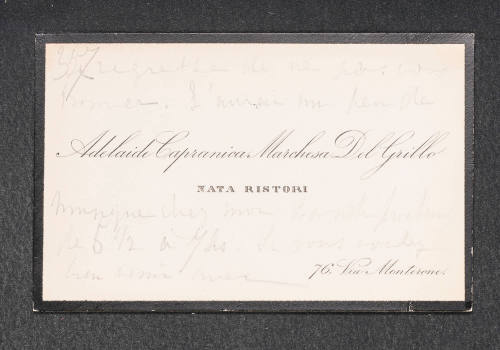 367
regrette de ne pas vous
trouver. J'aurai un peu de
Adelaide Capranica Marchesa Del Grillo
NATA RISTORI
musique chez moi
de 5 1/2 à 7 hs. Si vous voulez
bien venir
76. Via Monterone.